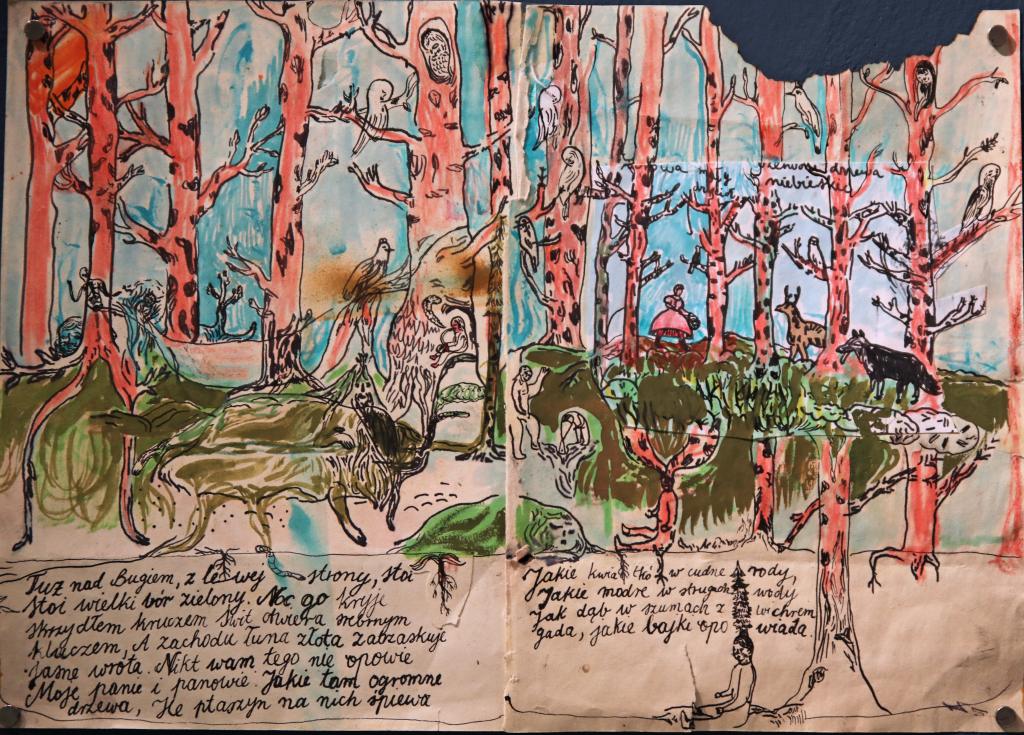 niebieskie
Tuż nad Bugiem, z lewej strony, stoi
stoi wielki bór zielony. Noc go kryje
skrzydłem kruczem świt otwiera srebrnym
kluczem, A zachodu łuna złota zabzaskuje
Jasne wrota. Nikt wam tego nie opowie
Moje panie i panowie. Jakie tam ogromne
drzewa, Ile ptaszyn na nich śpiewa
Jakie kwiatków cudne rody,
Jakie modre w strugach wody
Jak dąb w szumach z wichrem
gada, jakie bajki opowiada.